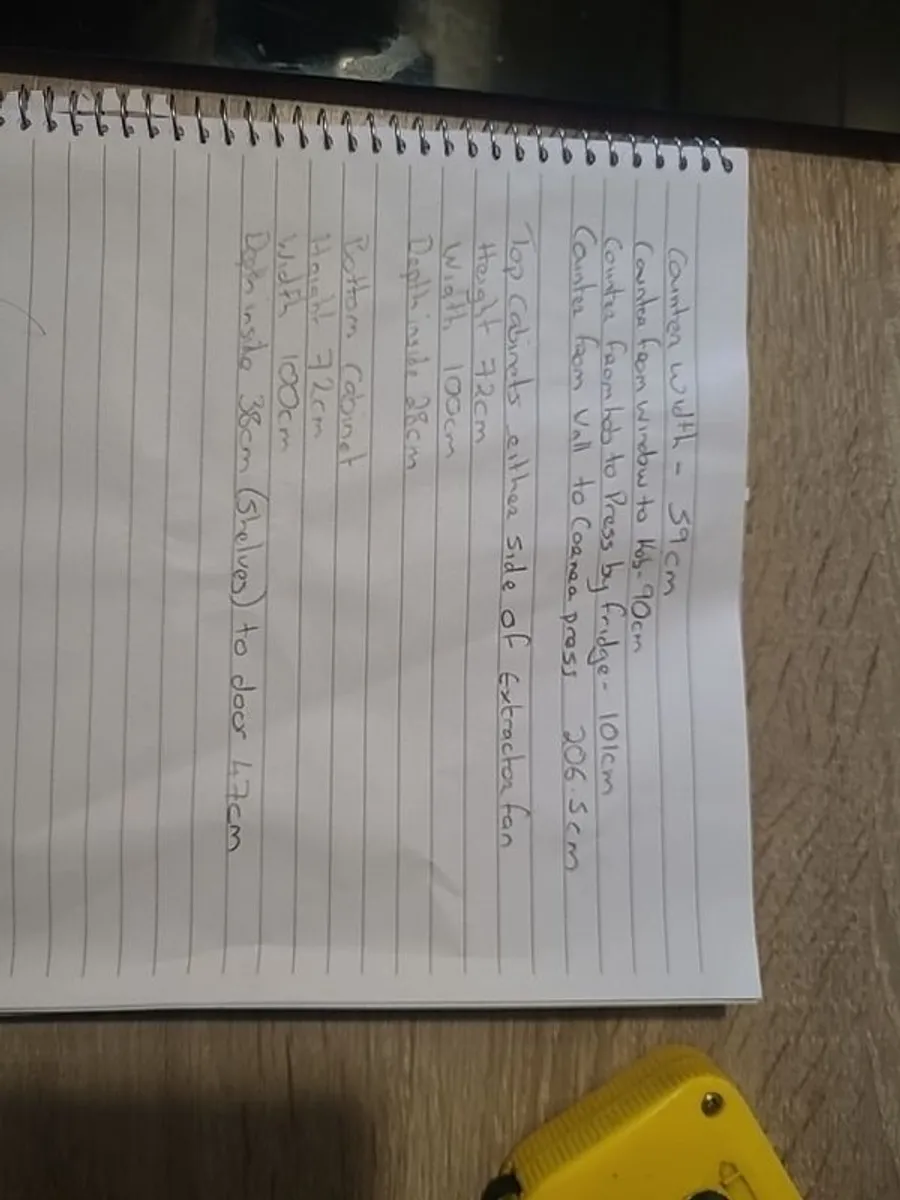 Counter width - 59cm
Counter from window to Hob - 90cm
Counter from hob to Press by fridge - 101cm
Counter from Wall to Corner press 206.5cm
Top Cabinets either side of Extractor fan
Height 72cm
Width 100cm
Depth inside 28cm
Bottom Cabinet
Height 72cm
Width 100cm
Depth inside 38cm (Shelves) to door 47cm